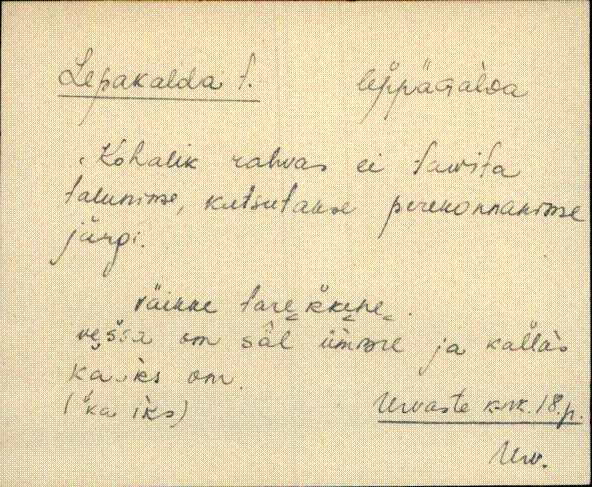 Lepakalda t. leppägalda
Kohalik rahvas ei tarvita
talunime, kutsutakse perekonnanime
järgi.
väikke tarekkene.
vešsa om säl ümmre ja kallas
ka iks om.
(ka iks)
Urvaste knk. 18. p.
Urv.